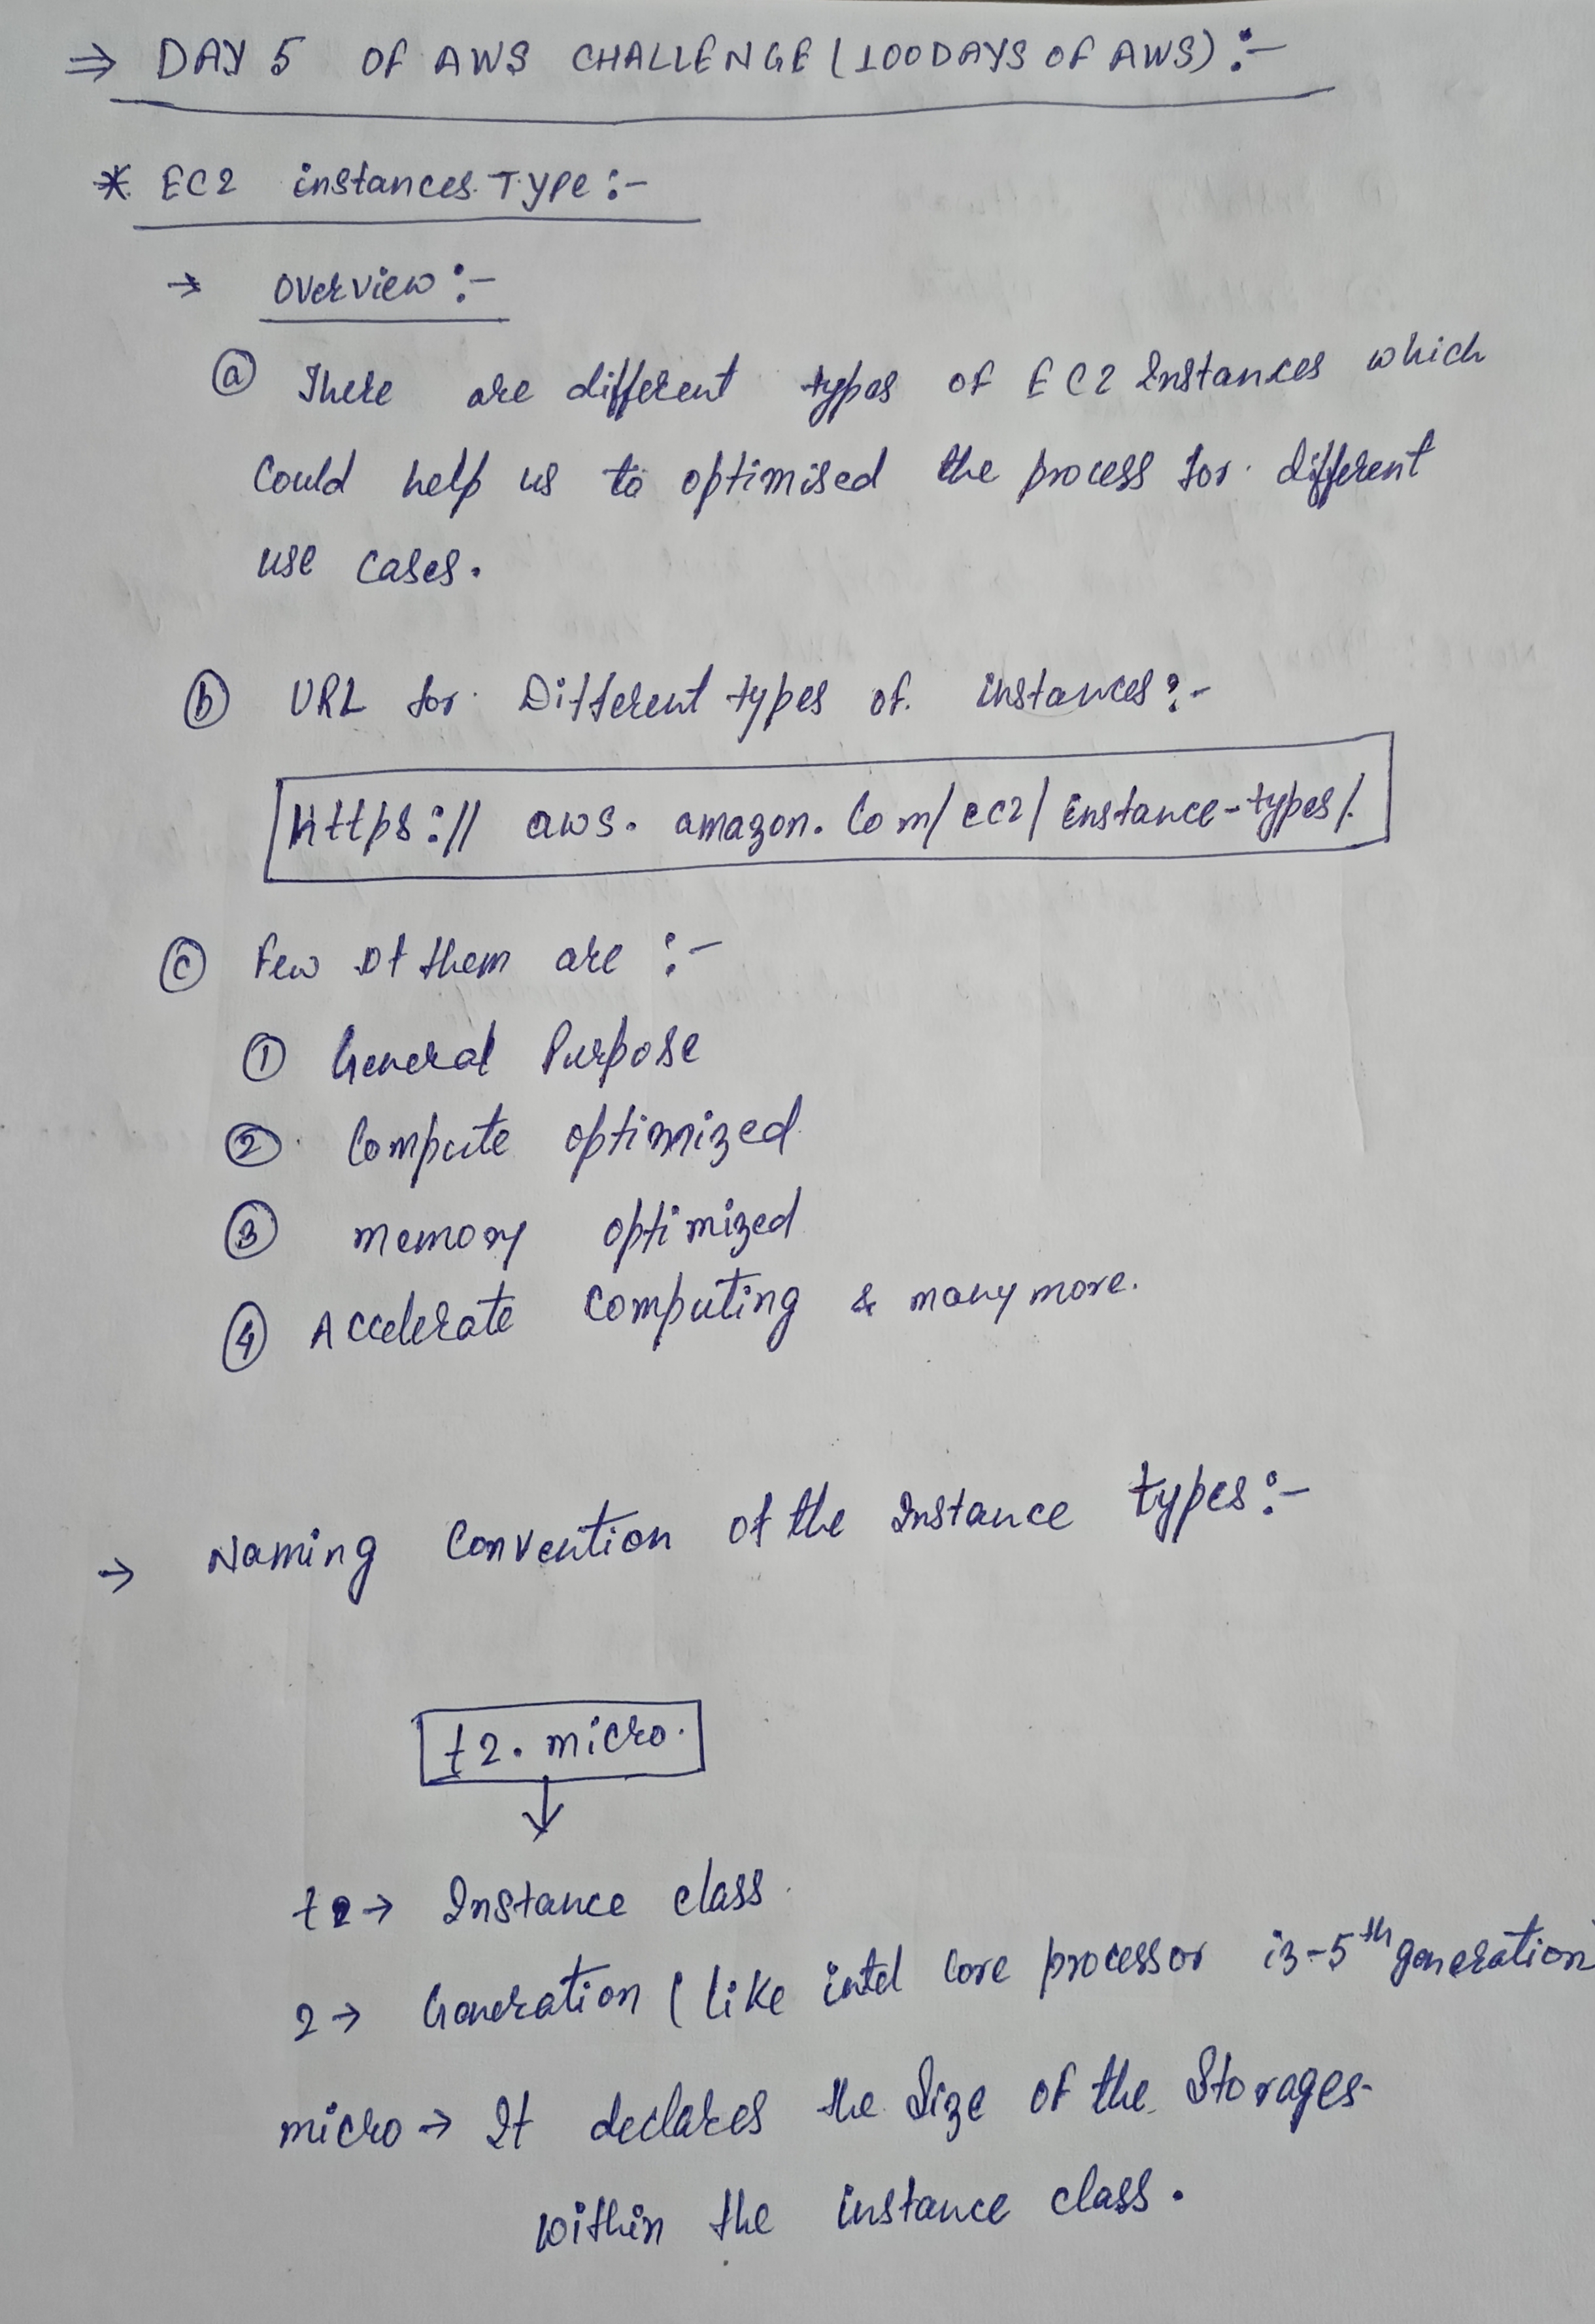 ⇒ DAY 5 OF AWS CHALLENGE (100DAYS OF AWS) :-
* EC2 instances Type :-
→ overview :-
ⓐ There are different types of EC2 Instances which
Could help us to optimised the process for different
use cases.
ⓑ URL for Different types of instances :-
https:// aws. amazon. Com/ec2/instance-types/.
ⓒ Few of them are :-
① General Purpose
② Compute optimized
③ memory optimized
④ Accelerate Computing & many more.
→ Naming Convention of the Instance types :-
t2. micro.
t2 → Instance class.
2 → Generation ( like intel Core processor i3-5th generation
micro → It declares the Size of the Storages
within the instance class.